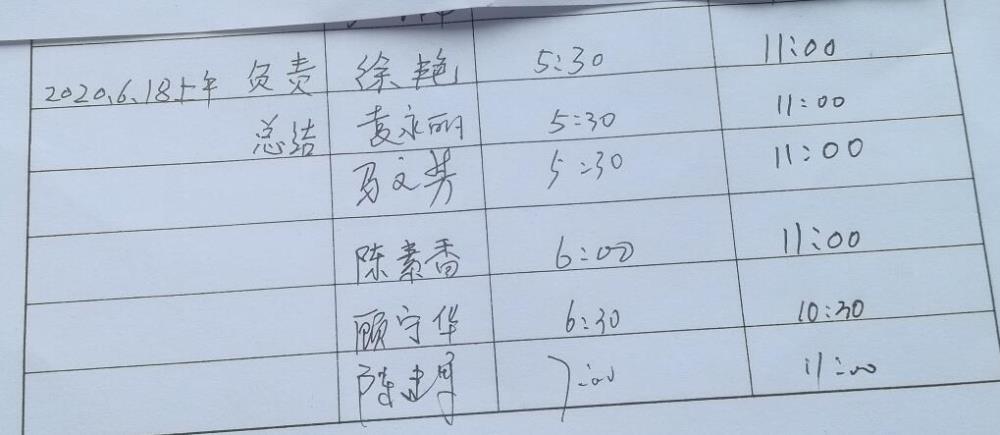 2020.6.18上午 负责 徐艳 5:30 11:00
总结 袁永丽 5:30 11:00
马文芳 5:30 11:00
陈素香 6:00 11:00
顾守华 6:30 10:30
陈 7:00 11:00